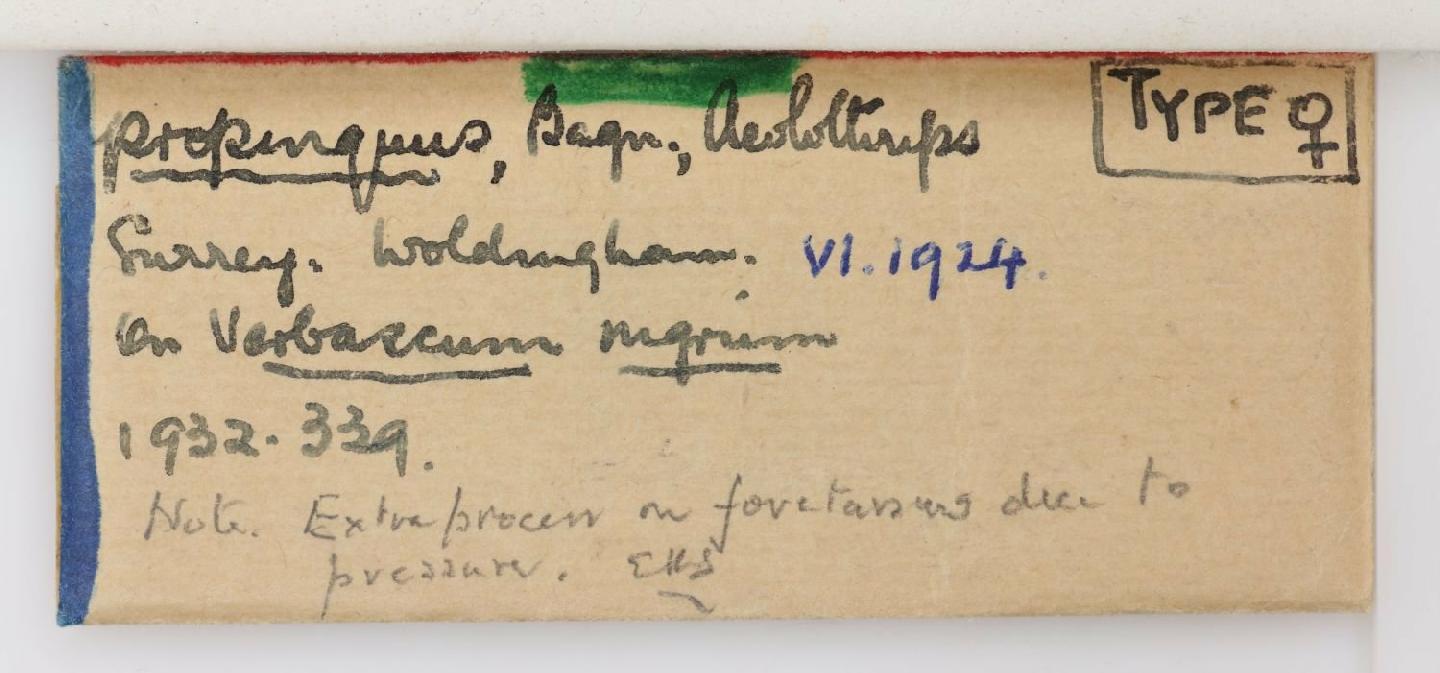 propinquus, Bagn., Aeolothrips
TYPE ♀
Surrey. Woldingham. VI.1924.
On Verbascum nigrum
1932-339.
Note. Extra process on foretarsus due to
pressure. EKS